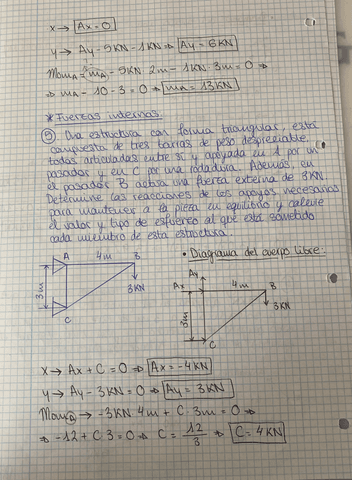 x → Ax = 0
y → Ay - 5KN - 1KN ⇒ Ay = 6KN
MomA = mA - 5KN · 2m - 1KN · 3m = 0 ⇒
⇒ mA - 10 - 3 = 0 ⇒ mA = 13KN
* Fuerzas internas
⑤ Una estructura con forma triangular, está
compuesta de tres barras de peso despreciable,
todas articuladas entre sí y apoyada en A por un
pasador y en C por una rodadura. Además, en
el pasador B actúa una fuerza externa de 3KN.
Determine las reacciones de los apoyos necesarios
para mantener a la pieza en equilibrio y calcule
el valor y tipo de esfuerzo al que está sometido
cada miembro de esta estructura.
• Diagrama del cuerpo libre:
A 4m B
3m
3KN
C
Ay
Ax 4m B
3m
3KN
C
x → Ax + C = 0 ⇒ Ax = -4KN
y → Ay - 3KN = 0 ⇒ Ay = 3KN
MomA → -3KN · 4m + C · 3m = 0 ⇒
⇒ -12 + C · 3 = 0 ⇒ C = 12/3 ⇒ C = 4KN